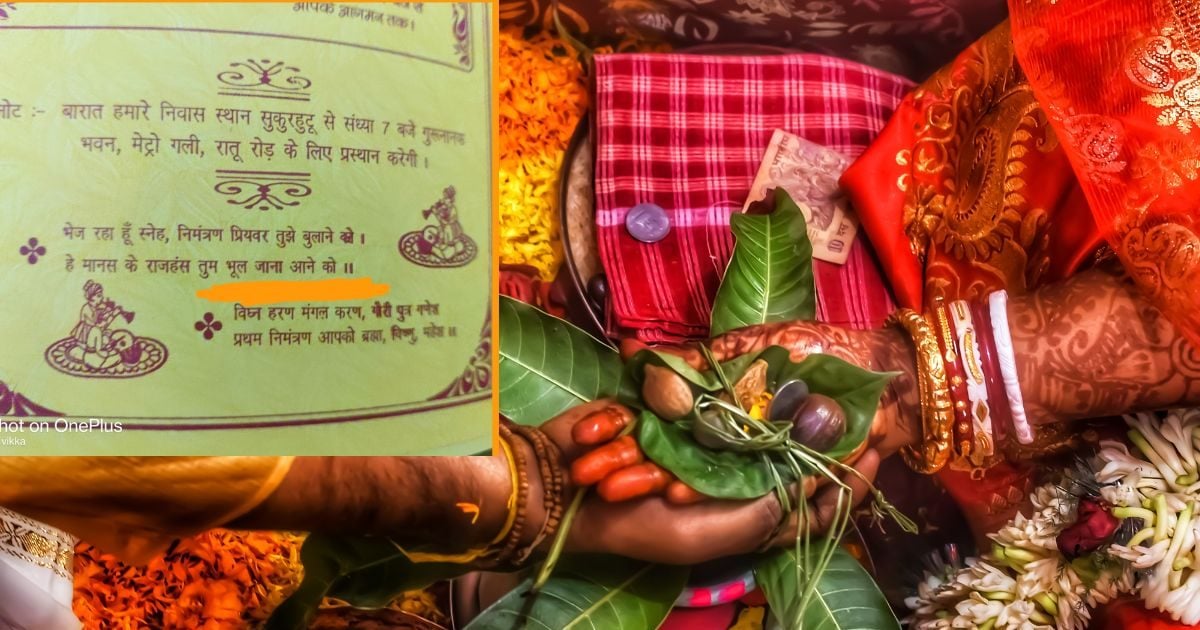 आपके आगमन तक।
नोट :- बारात हमारे निवास स्थान सुकुरहुटू से संध्या 7 बजे गुरूनानक
भवन, मेट्रो गली, रातू रोड़ के लिए प्रस्थान करेगी।
भेज रहा हूँ स्नेह, निमंत्रण प्रियवर तुझे बुलाने को।
हे मानस के राजहंस तुम भूल जाना आने को॥
विघ्न हरण मंगल करण, गौरी पुत्र गणेश
प्रथम निमंत्रण आपको ब्रह्मा, विष्णु, महेश॥
hot on OnePlus
vikka